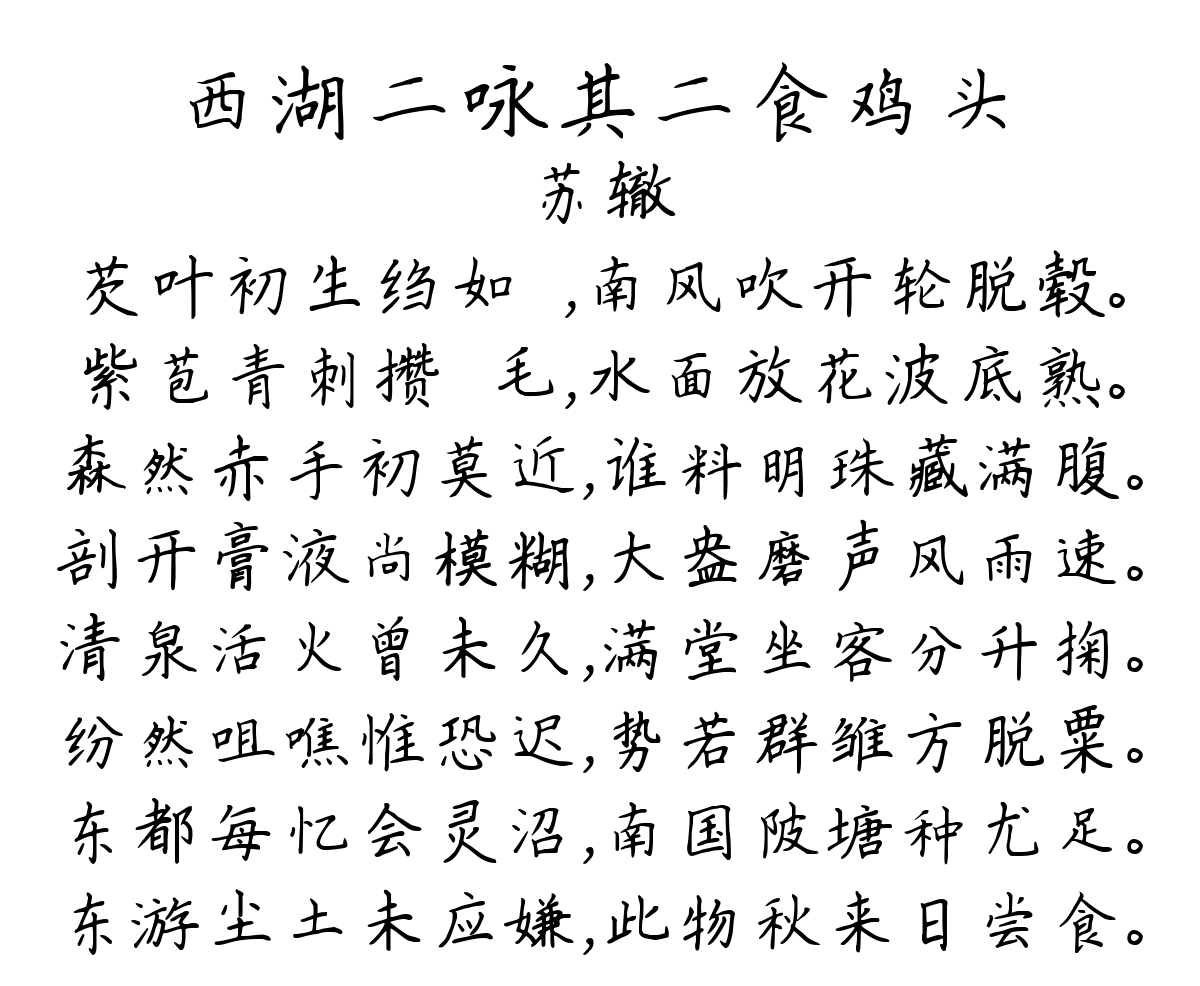 西湖二咏其二食鸡头
苏辙
芡叶初生绉如 ,南风吹开轮脱毂。
紫苞青刺攒 毛,水面放花波底熟。
森然赤手初莫近,谁料明珠藏满腹。
剖开膏液尚模糊,大盎磨声风雨速。
清泉活火曾未久,满堂坐客分升掬。
纷然咀噍惟恐迟,势若群雏方脱粟。
东都每忆会灵沼,南国陂塘种尤足。
东游尘土未应嫌,此物秋来日尝食。